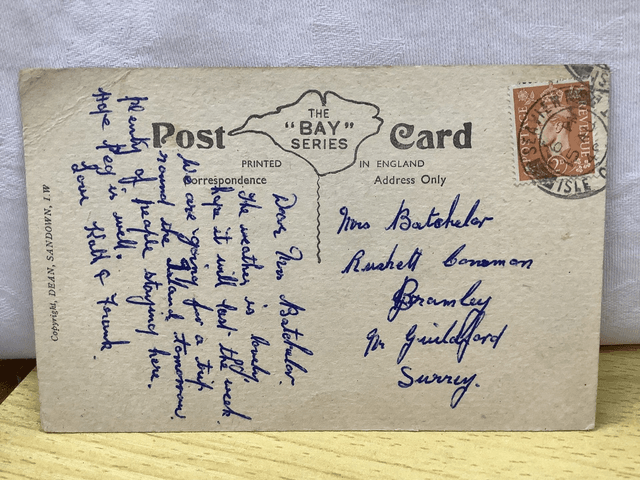 Post Card
THE
"BAY"
SERIES
PRINTED IN ENGLAND
Correspondence
Address Only
Dear Mrs Batchelor.
The weather is lovely
hope it will last the week.
We are going for a trip
round the Island tomorrow
plenty of people staying here.
Hope Reg is well.
Love Kath & Frank.
Mrs Batchelor
Rushett Common
Bramley
Nr Guildford
Surrey.
Copyright, DEAN, SANDOWN, I.W
POSTAGE REVENUE
ISLE O